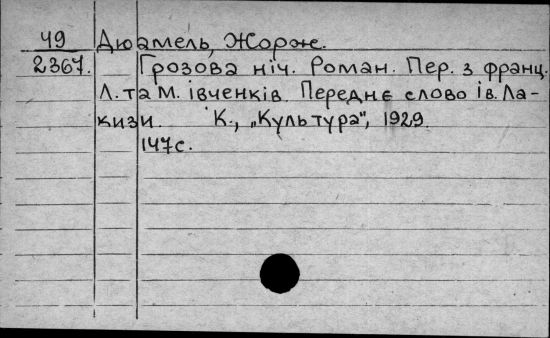 49 Дюамель, Жорж.
2367. Грозова ніч. Роман. Пер. з франц.
Л. та М. івченків. Переднє слово ів. Ла-
кизи. К., „Культура", 1929.
147с.